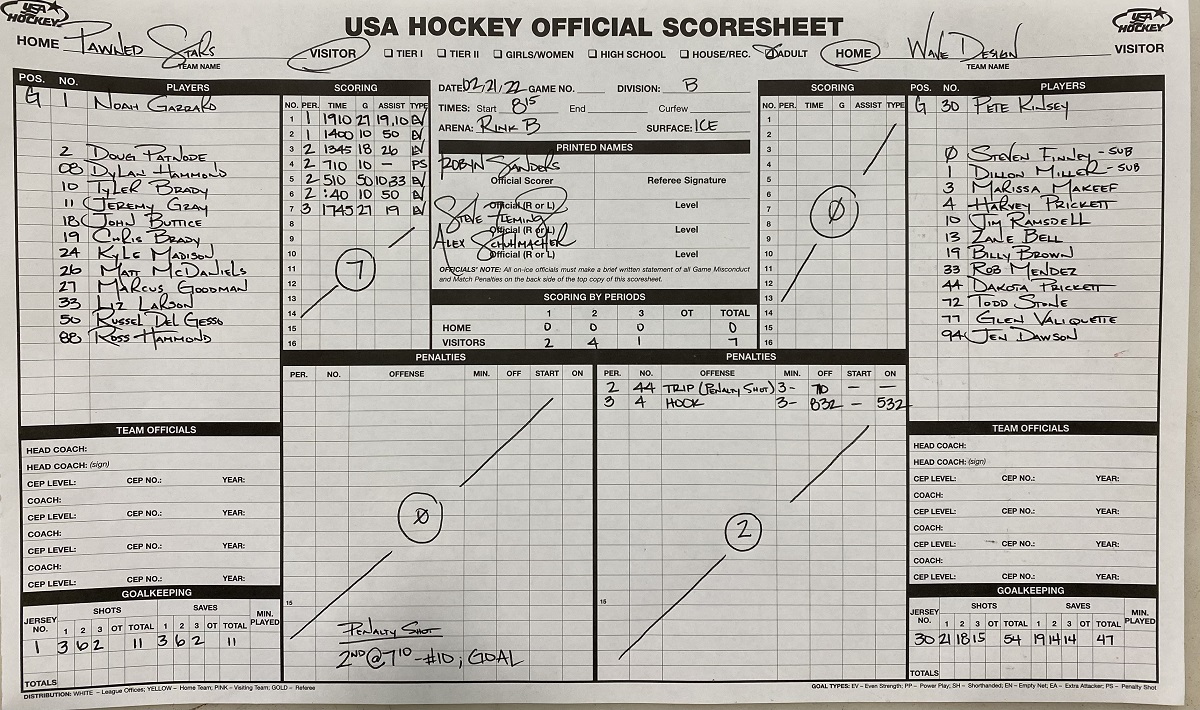 USA HOCKEY
USA HOCKEY OFFICIAL SCORESHEET
USA HOCKEY
HOME Pawned Stars VISITOR TIER I TIER II GIRLS/WOMEN HIGH SCHOOL HOUSE/REC. ADULT HOME Wave Design VISITOR
TEAM NAME TEAM NAME
POS. NO. PLAYERS
G 1 Noah Garrard
2 Doug Patnode
08 Dylan Hammond
10 Tyler Brady
11 Jeremy Gray
18 John Buttice
19 Chris Brady
24 Kyle Madison
26 Matt McDaniels
27 Marcus Goodman
33 Liz Larson
50 Russel Del Gesso
88 Ross Hammond
SCORING
NO. PER. TIME G ASSIST TYPE
1 1 1910 27 19,10 EV
2 1 1400 10 50 EV
3 2 1345 18 26 EV
4 2 710 10 — PS
5 2 510 50 10 33 EV
6 2 :40 10 50 EV
7 3 1745 27 19 EV
8
9
10
11
12
13
14
15
16
7
DATE 02,21,22 GAME NO. DIVISION: B
TIMES: Start 815 End Curfew
ARENA: Rink B SURFACE: ICE
PRINTED NAMES
Robyn Sanders
Official Scorer Referee Signature
Official (R or L) Level
Steve Fleming
Official (R or L) Level
Alex Schumacher
Official (R or L) Level
OFFICIALS' NOTE: All on-ice officials must make a brief written statement of all Game Misconduct
and Match Penalties on the back side of the top copy of this scoresheet.
SCORING BY PERIODS
1 2 3 OT TOTAL
HOME 0 0 0 0
VISITORS 2 4 1 7
SCORING
NO. PER. TIME G ASSIST TYPE
1
2
3
4
5
6
7
8
9
10
11
12
13
14
15
16
0
POS. NO. PLAYERS
G 30 Pete Kinsey
0 Steven Finney - SUB
1 Dillon Miller - SUB
3 Marissa Makeef
4 Harvey Prickett
10 Jim Ramsdell
13 Zane Bell
19 Billy Brown
33 Rob Mendez
44 Dakota Prickett
72 Todd Stone
77 Glen Valiquette
94 Jen Dawson
PENALTIES
PER. NO. OFFENSE MIN. OFF START ON
0
15
Penalty Shot
2ND @ 710 - #10; GOAL
PENALTIES
PER. NO. OFFENSE MIN. OFF START ON
2 44 TRIP (Penalty Shot) 3- 710 — —
3 4 HOOK 3- 832 — 532
2
15
TEAM OFFICIALS
HEAD COACH:
HEAD COACH: (sign)
CEP LEVEL: CEP NO.: YEAR:
COACH:
CEP LEVEL: CEP NO.: YEAR:
COACH:
CEP LEVEL: CEP NO.: YEAR:
COACH:
CEP LEVEL: CEP NO.: YEAR:
GOALKEEPING
JERSEY NO. SHOTS SAVES MIN. PLAYED
1 2 3 OT TOTAL 1 2 3 OT TOTAL
1 3 6 2 11 3 6 2 11
TOTALS
TEAM OFFICIALS
HEAD COACH:
HEAD COACH: (sign)
CEP LEVEL: CEP NO.: YEAR:
COACH:
CEP LEVEL: CEP NO.: YEAR:
COACH:
CEP LEVEL: CEP NO.: YEAR:
COACH:
CEP LEVEL: CEP NO.: YEAR:
GOALKEEPING
JERSEY NO. SHOTS SAVES MIN. PLAYED
1 2 3 OT TOTAL 1 2 3 OT TOTAL
30 21 18 15 54 19 14 14 47
TOTALS
DISTRIBUTION: WHITE – League Offices; YELLOW – Home Team; PINK – Visiting Team; GOLD – Referee
GOAL TYPES: EV – Even Strength; PP – Power Play; SH – Shorthanded; EN – Empty Net; EA – Extra Attacker; PS – Penalty Shot